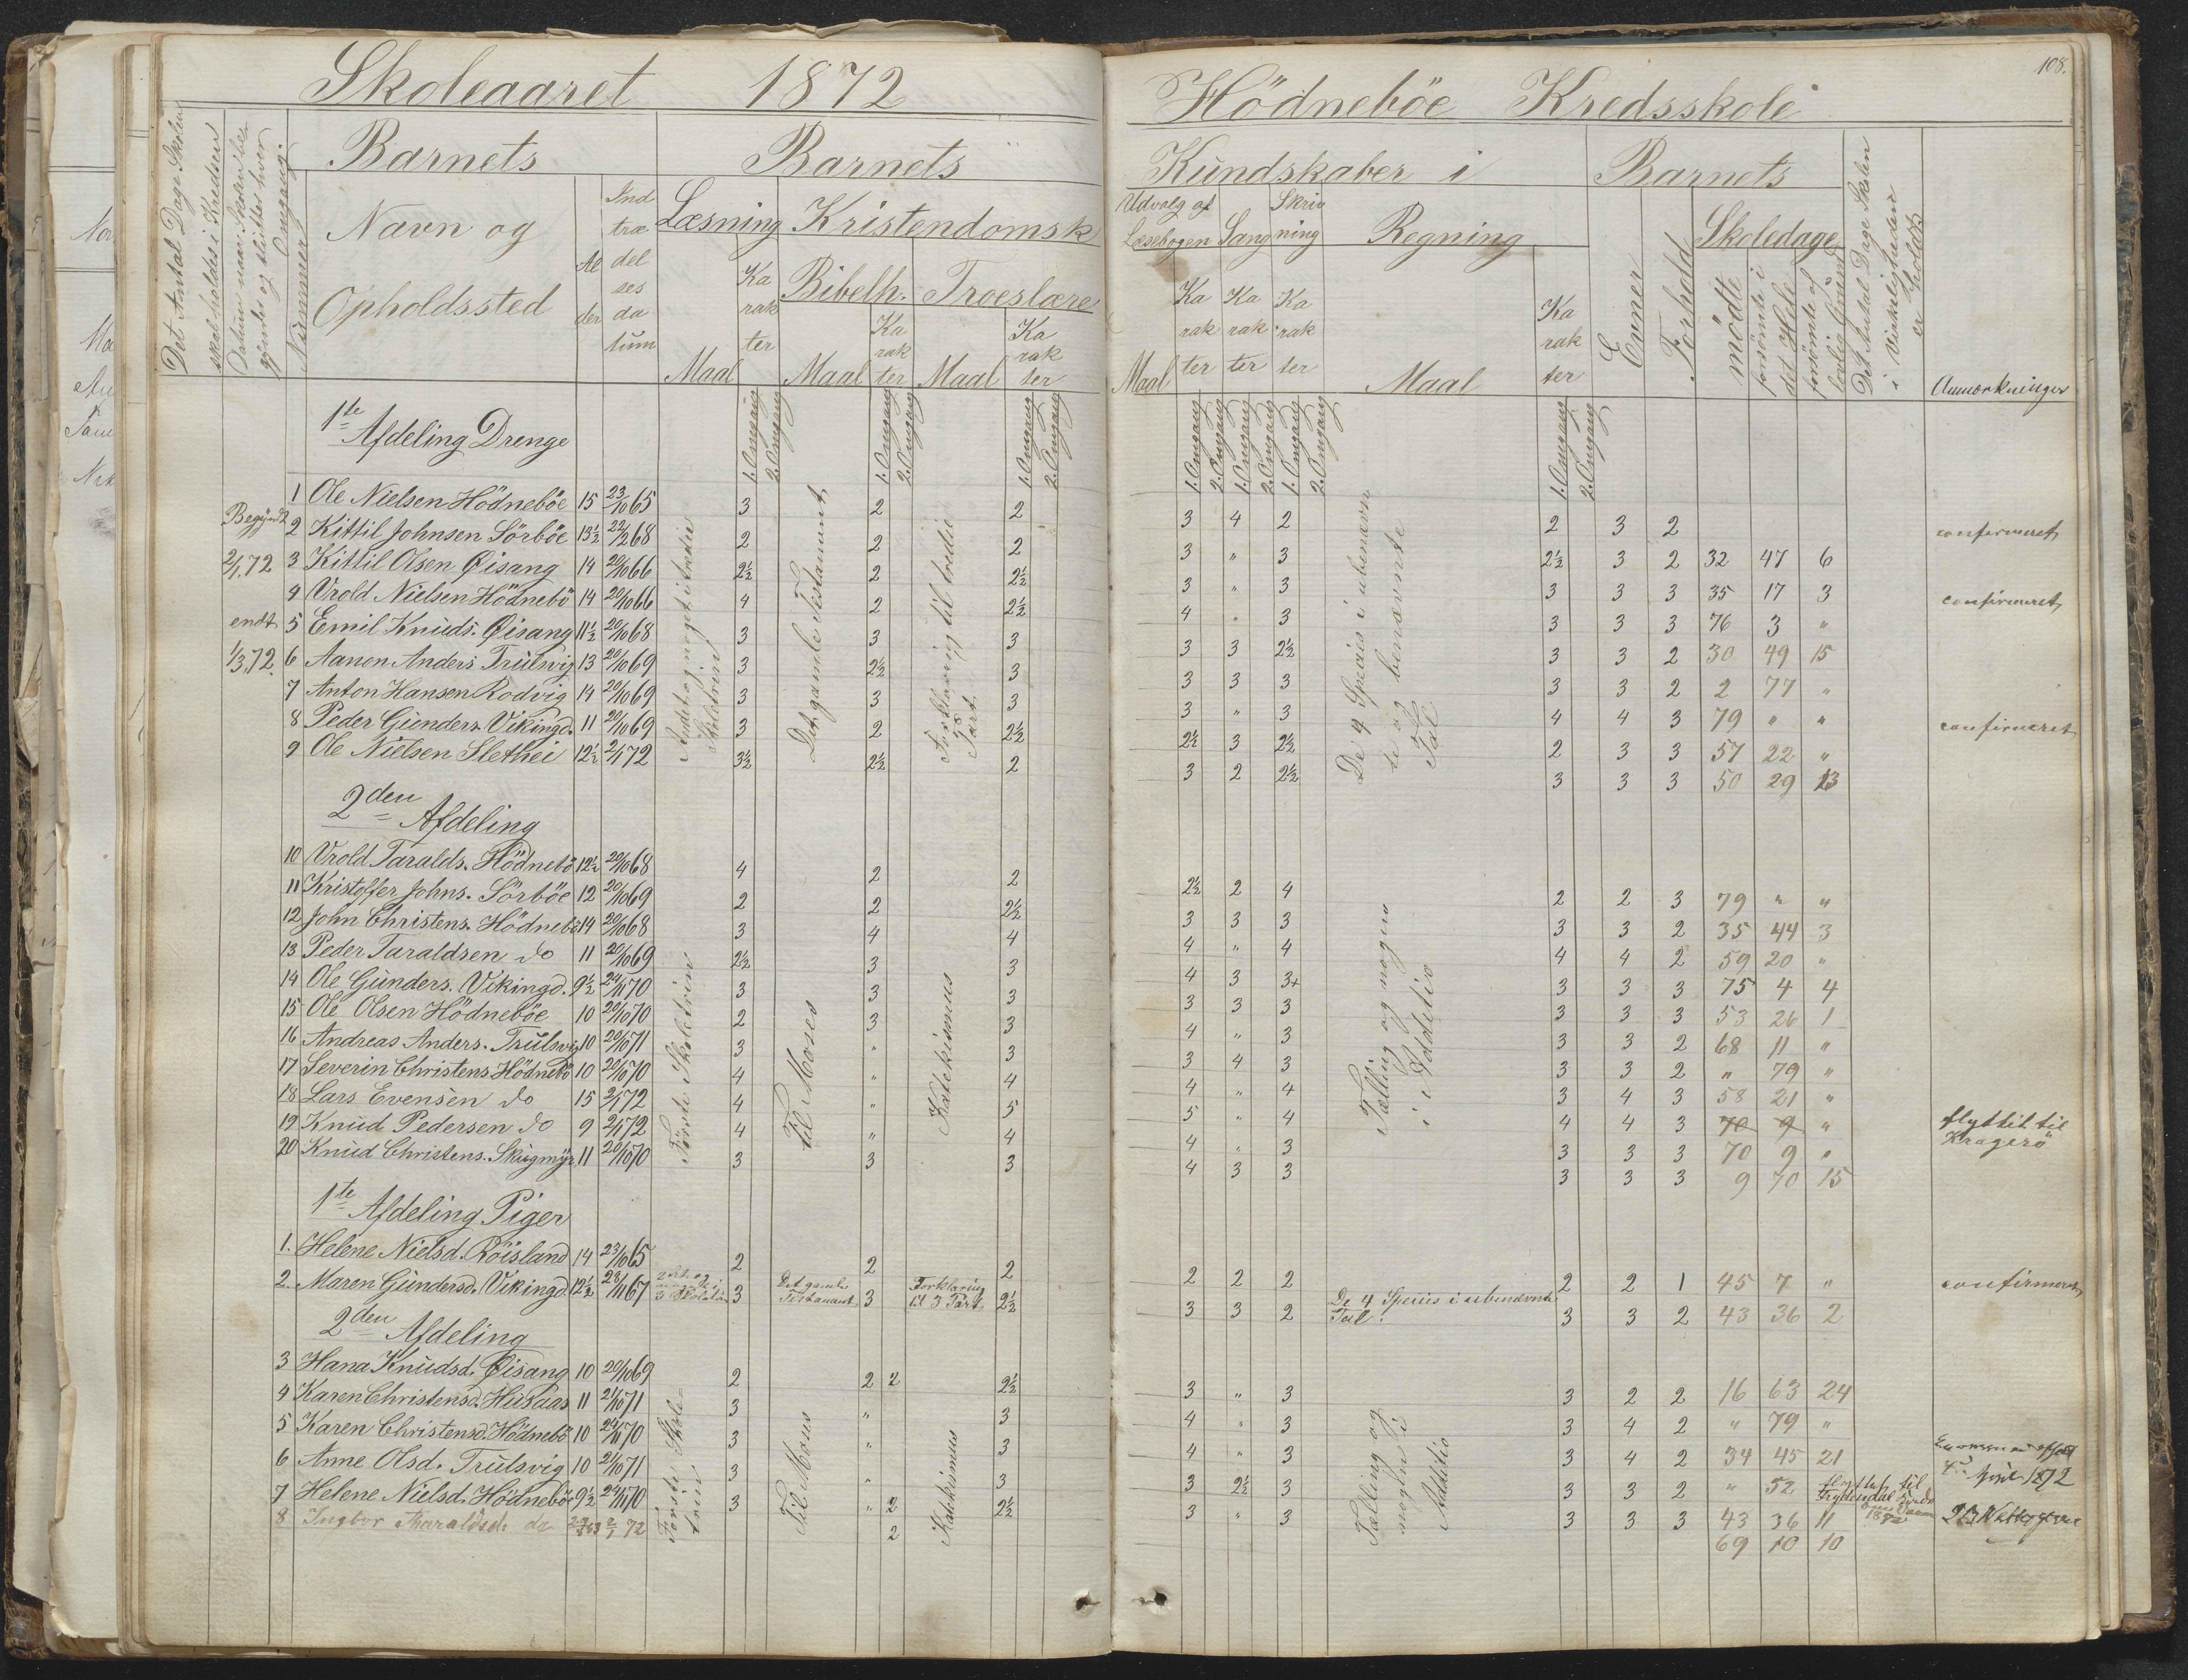 Skoleaaret 1872
Det Antal Dage Skolen
skal holdes i Kredsen
Datum naar Skolen be-
gynder og slutter hver
Omgang.
Nummer
Barnets
Navn og
Opholdssted
Al
der
Ind
træ
del
ses
da
tum
Barnets
Læsning
Maal
Ka
rak
ter
Kristendomsk
Bibelh.
Maal
Ka
rak
ter
Troeslære
Maal
Ka
rak
ter
1. Omgang
2. Omgang
1. Omgang
2. Omgang
1. Omgang
2. Omgang
1te Afdeling Drenge
Begyndt
2/1 72
endt
1/3 72.
1 Ole Nielsen Hödneböe 15 23/10 65 3 2 2
2 Kittil Johnsen Sörböe 13½ 22/2 68 2 2 2
3 Kittil Olsen Øisang 14 20/10 66 2½ 2 2½
4 Vrold Nielsen Hödnebö 14 20/10 66 4 2 2½
5 Emil Knuds. Øisang 11½ 20/10 68 3 3 3
6 Aanon Anders Trulsvig 13 20/10 69 3 2½ 3
7 Anton Hansen Rodvig 14 20/10 69 3 3 3
8 Peder Gunders. Vikingd. 11 20/10 69 3 2 2½
9 Ole Nielsen Slethei 12½ 2/1 72 3½ 2½ 2
Andet og noget i tredie
Skoletrin
Det gamle Testament
Forklaring til tredie
Part.
2den Afdeling
10 Vrold Taralds. Hödnebö 12½ 20/10 68 4 2 2
11 Kristoffer Johns. Sörböe 12 20/10 69 2 2 2½
12 John Christens. Hödnebö 14 20/10 68 3 4 4
13 Peder Taraldsen do 11 20/10 69 2½ 3 3
14 Ole Gunders. Vikingd. 9½ 24/11 70 3 3 3
15 Ole Olsen Hödneböe 10 20/10 70 2 3 3
16 Andreas Anders. Trulsvig 10 20/10 71 3 " 3
17 Severin Christens Hödnebö 10 20/10 70 4 " 4
18 Lars Evensen do 15 2/1 72 4 " 5
19 Knud Pedersen do 9 2/1 72 4 " 4
20 Knud Christens. Skugmyr 11 20/10 70 3 3 3
Første Skoletrin
til Moses
Katekismus
1te Afdeling Piger
1. Helene Nielsd. Röisland 14 23/10 65 2 2 2
2. Maren Gundersd. Vikingd. 12½ 28/11 67 3 Det gamle Testament 3 Forklaring til 3 Part 2½
2den Afdeling
3 Hana Knudsd. Øisang 10 20/10 69 2 2 2 2½
4 Karen Christensd. Husaas 11 21/10 71 3 " 3
5 Karen Christensd. Hödnebö 10 24/11 70 3 " 3
6 Anne Olsd. Trulsvig 10 21/10 71 3 " 3
7 Helene Nielsd. Hödneböe 9½ 24/11 70 3 " 2 2½
8 Ingbor Tharaldsd. do 2/1 72 2
Første Skole-
trin
Til Moses
Katekismus
108.
Hödneböe Kredsskole
Kundskaber i
Udvalg af
Læsebogen
Maal
Ka
rak
ter
Sang
Ka
rak
ter
Skriv
ning
Ka
rak
ter
Regning
Maal
Ka
rak
ter
Barnets
Evner
Forhold
Skoledage
mödte
forsömte i
det Hele
forsömte af
lovlig Grund
Det Antal Dage Skolen
i Virkeligheden
er holdt
Anmærkninger
1. Omgang
2. Omgang
1. Omgang
2. Omgang
1. Omgang
2. Omgang
1. Omgang
2. Omgang
3 4 2 2 3 2 confirmeret
3 " 3 2½ 3 2 32 47 6
3 " 3 3 3 3 35 17 3 confirmeret
4 " 3 3 3 3 76 3 "
3 3 2½ 3 3 2 30 49 15
3 3 3 3 3 2 2 77 "
3 " 3 4 4 3 79 " " confirmeret
2½ 3 2½ 2 3 3 57 22 "
3 2 2½ 3 3 3 50 29 13
De 4 Species i ubenævn
te og benævnte
Tal
2½ 2 4 2 2 3 79 " "
3 3 3 3 3 2 35 44 3
4 " 4 4 4 2 59 20 "
4 3 3+ 3 3 3 75 4 4
3 3 3 3 3 3 53 26 1
4 " 3 3 3 2 68 11 "
3 4 3 3 3 2 " 79 "
4 " 4 3 4 3 58 21 "
5 " 4 4 4 3 70 9 " flyttet til
Kragerö
4 " 3 3 3 3 70 9 "
4 3 3 3 3 3 9 70 15
Tælling og nogen
i Additio
2 2 2 2 2 1 45 7 " confirmeret
3 3 2 De 4 Species i ubenævnte Tal. 3 3 2 43 36 2
3 " 3 3 2 2 16 63 24
4 " 3 3 4 2 " 79 "
4 " 3 3 4 2 34 45 21
3 2½ 3 3 3 2 " 52 flyttet til
3 " 3 3 3 3 43 36 11
69 10 10
Tælling og
nogen i
Additio
1872
April 1872